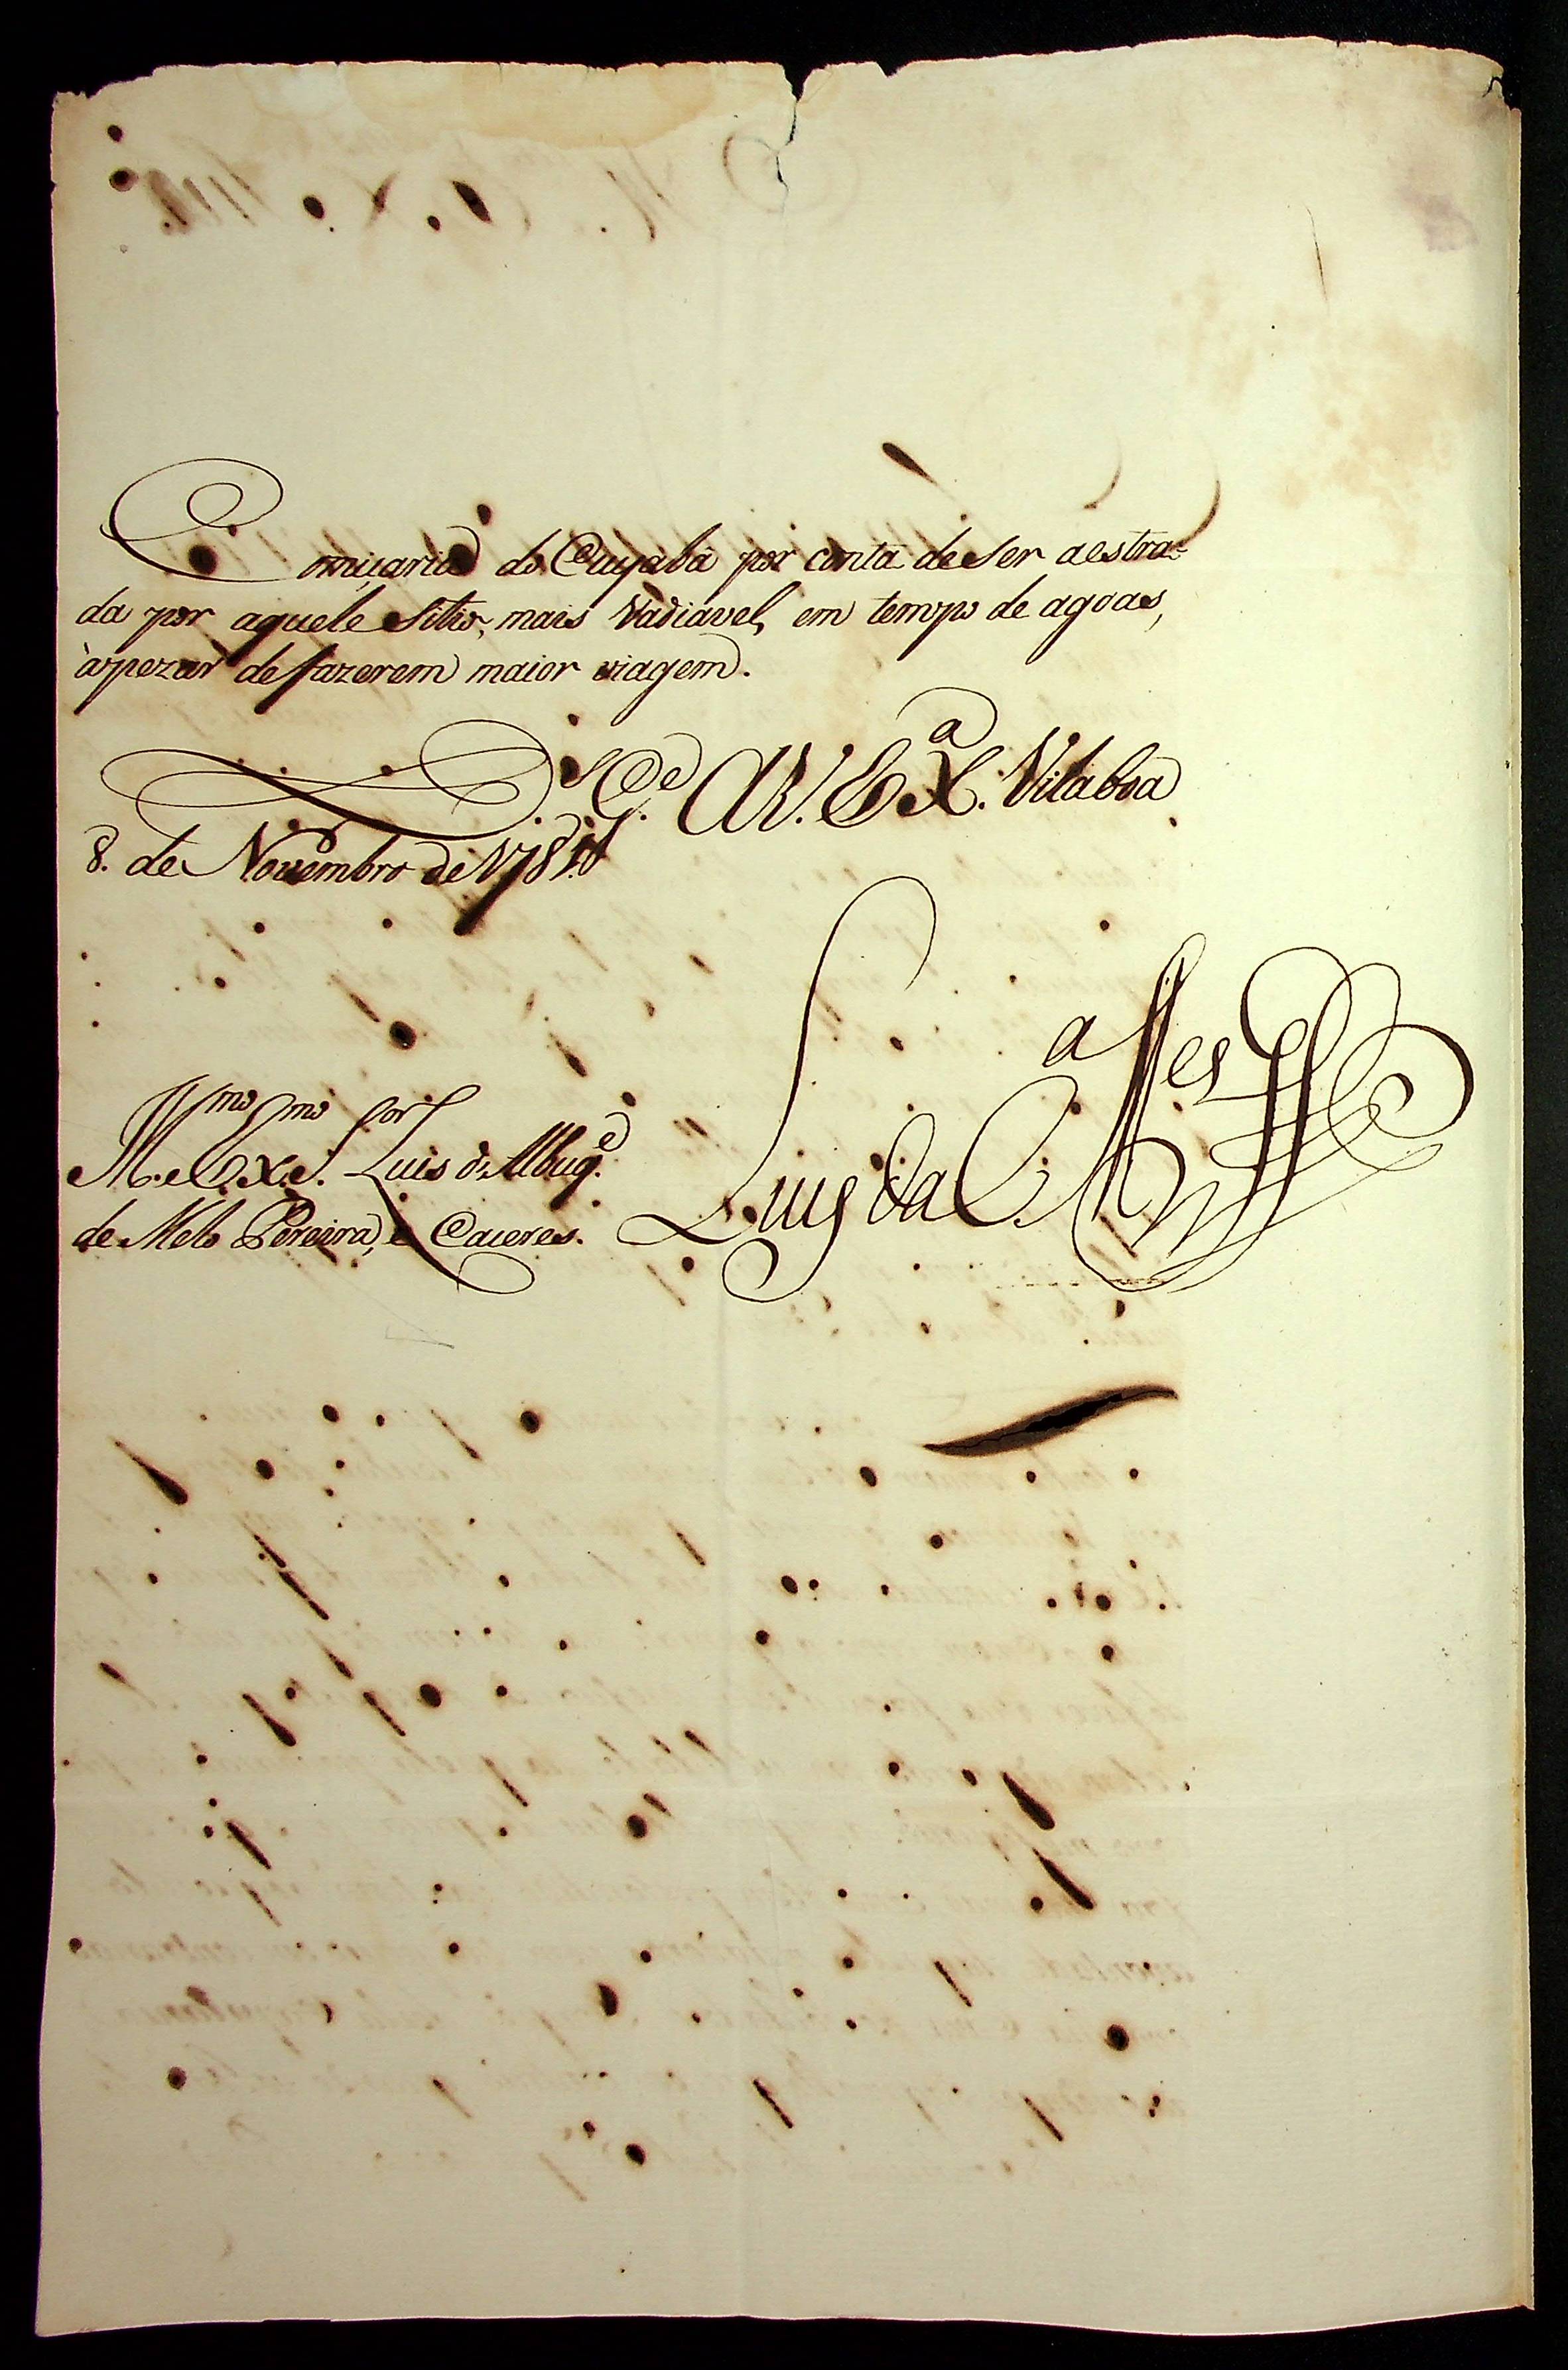 Comiçaria do Cuyabá por conta de ser a estra-
da por aquele Sitio, mais Vadiavel, em tempo de agoas,
àpezar de fazerem maior viagem.
D.s G.de A V. Ex.a Vilaboa
8. de Novembro de 1781.
Ill.mo Ex.mo S.or Luis de Albuq.e
de Melo Pereira, e Caceres.
Luis da C.a Mes